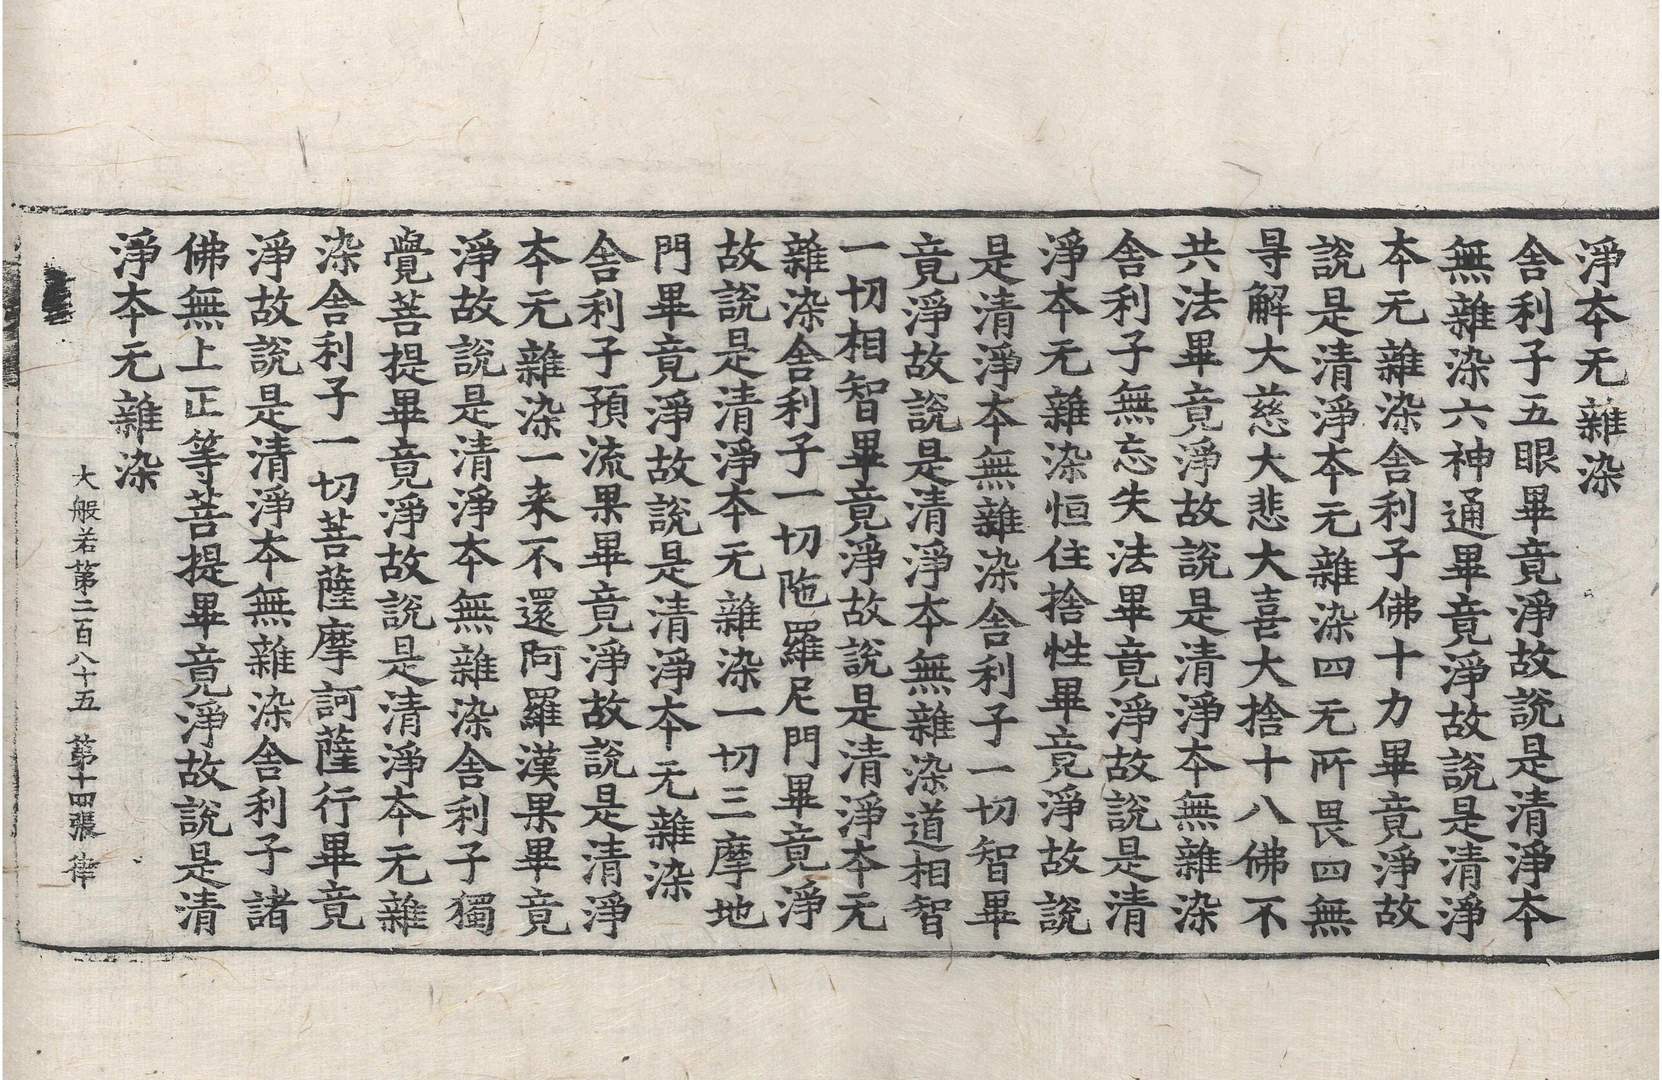 淨夲无雜染
舎利子五眼畢竟淨故說是清淨夲
無雜染六神通畢竟淨故說是清淨
夲元雜染舎利子佛十力畢竟淨故
說是清淨夲元雜染四无所畏四無
㝵解大慈大悲大喜大捨十八佛不
共法畢竟淨故說是清淨夲無雜染
舎利子無忘失法畢竟淨故說是清
淨夲无雜染恒住捨性畢竟淨故說
是清淨夲無雜染舎利子一切智畢
竟淨故說是清淨夲無雜染道相智
一切相智畢竟淨故說是清淨夲无
雜染舎利子一切陁羅尼門畢竟淨
故說是清淨夲无雜染一切三摩地
門畢竟淨故說是清淨夲无雜染
舎利子預流果畢竟淨故說是清淨
夲元雜染一来不還阿羅漢果畢竟
淨故說是清淨夲無雜染舎利子獨
覺菩提畢竟淨故說是清淨夲无雜
染舎利子一切菩薩摩訶薩行畢竟
淨故說是清淨夲無雜染舎利子諸
佛無上正等菩提畢竟淨故說是清
淨夲元雜染
大般若第二百八十五 第十四張 律